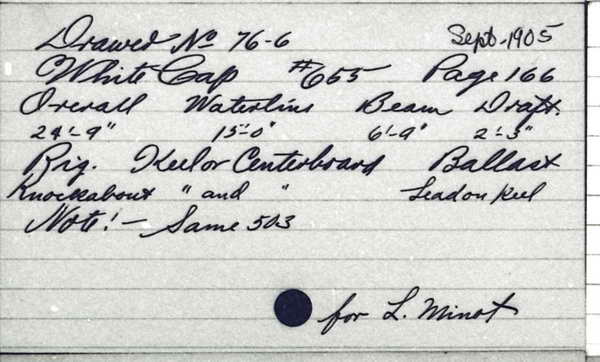 Drawer No 76-6 Sept-1905
White Cap #655 Page 166
Overall Waterline Beam Draft.
24'-9" 15'-0" 6'-9" 2'-5"
Rig. Keel or Centerboard Ballast
Knockabout " and " Lead on Keel
Note! - Same 503
for L. Minot